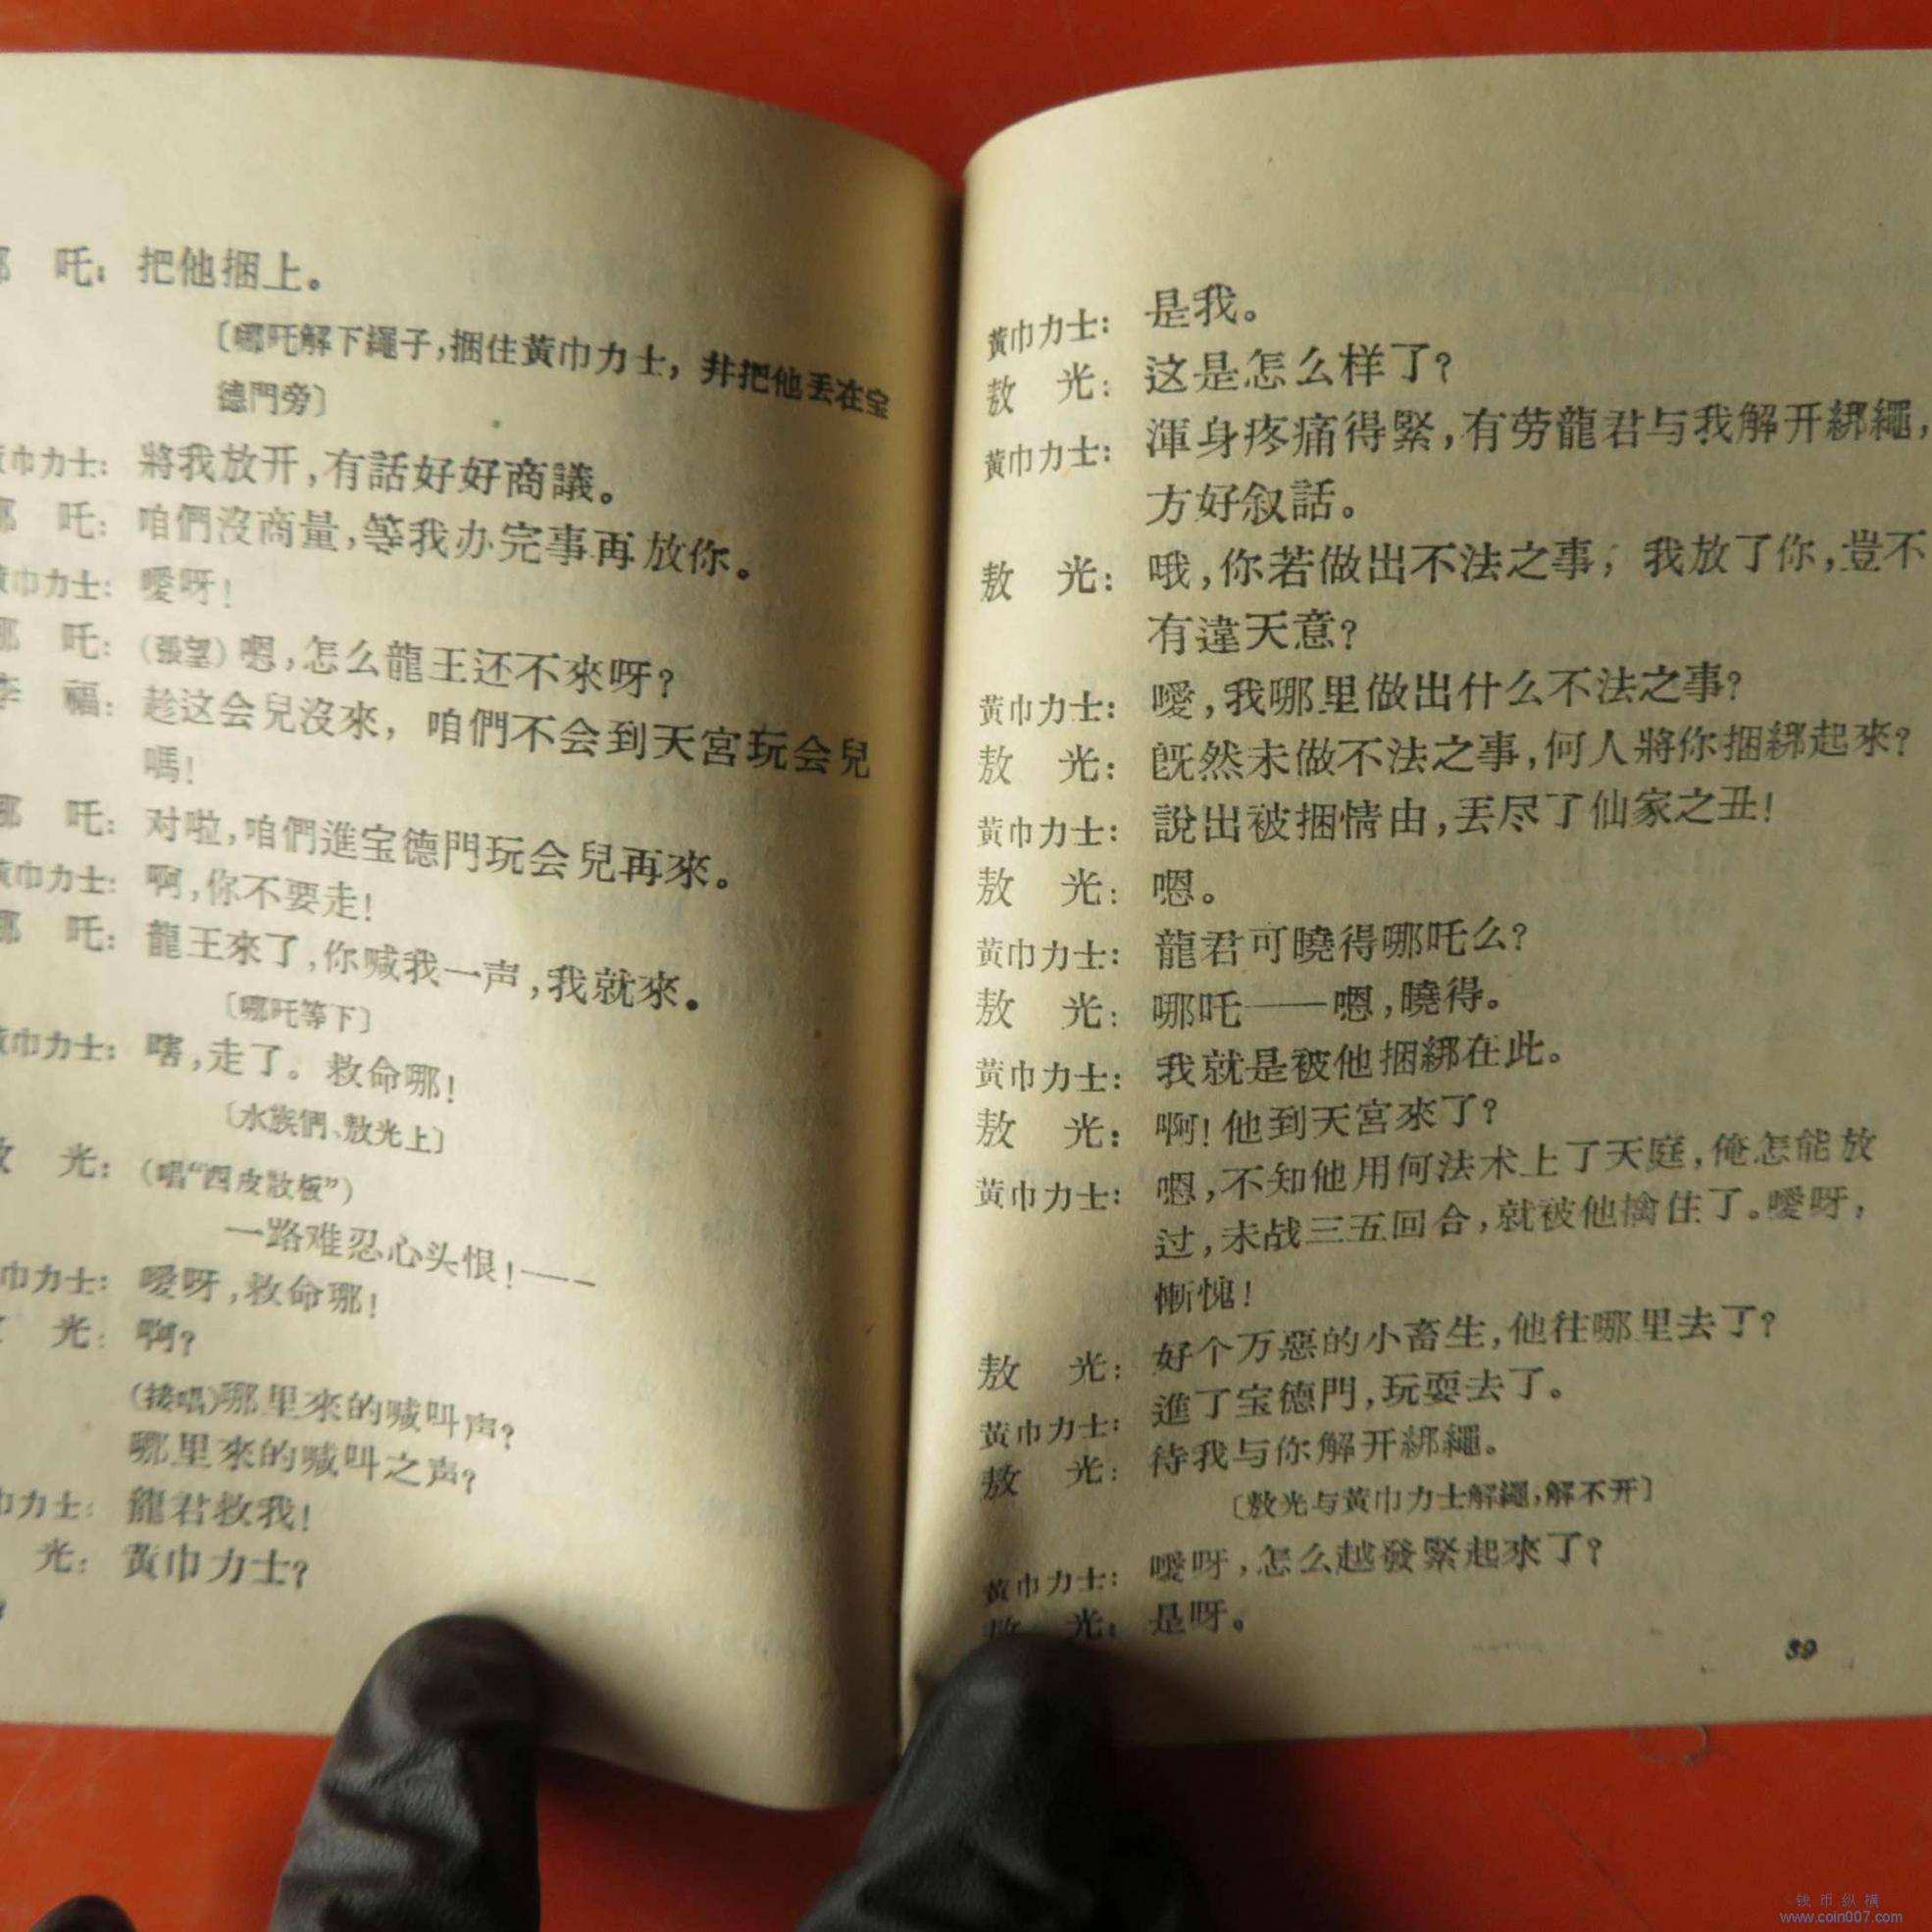 哪　吒：把他捆上。
〔哪吒解下繩子，捆住黃巾力士，并把他丢在宝
德門旁〕
黃巾力士：將我放开，有話好好商議。
哪　吒：咱們沒商量，等我办完事再放你。
黃巾力士：噯呀！
哪　吒：（張望）嗯，怎么龍王还不來呀？
李　福：趁这会兒沒來，咱們不会到天宮玩会兒
嗎！
哪　吒：对啦，咱們進宝德門玩会兒再來。
黃巾力士：啊，你不要走！
哪　吒：龍王來了，你喊我一声，我就來。
〔哪吒等下〕
黃巾力士：嗐，走了。救命哪！
〔水族們、敖光上〕
敖　光：（唱“四皮散板”）
一路难忍心头恨！——
巾力士：噯呀，救命哪！
光：啊？
（接唱）哪里來的喊叫声？
哪里來的喊叫之声？
巾力士：龍君救我！
光：黃巾力士？
黃巾力士：是我。
敖　光：这是怎么样了？
黃巾力士：渾身疼痛得緊，有劳龍君与我解开綁繩，
方好叙話。
敖　光：哦，你若做出不法之事，我放了你，豈不
有違天意？
黃巾力士：噯，我哪里做出什么不法之事？
敖　光：旣然未做不法之事，何人將你捆綁起來？
黃巾力士：說出被捆情由，丢尽了仙家之丑！
敖　光：嗯。
黃巾力士：龍君可曉得哪吒么？
敖　光：哪吒——嗯，曉得。
黃巾力士：我就是被他捆綁在此。
敖　光：啊！他到天宮來了？
黃巾力士：嗯，不知他用何法术上了天庭，俺怎能放
过，未战三五回合，就被他擒住了。噯呀，
慚愧！
敖　光：好个万惡的小畜生，他往哪里去了？
黃巾力士：進了宝德門，玩耍去了。
敖　光：待我与你解开綁繩。
〔敖光与黃巾力士解繩，解不开〕
黃巾力士：噯呀，怎么越發緊起來了？
敖　光：是呀。
39
钱币纵横
www.coin007.com